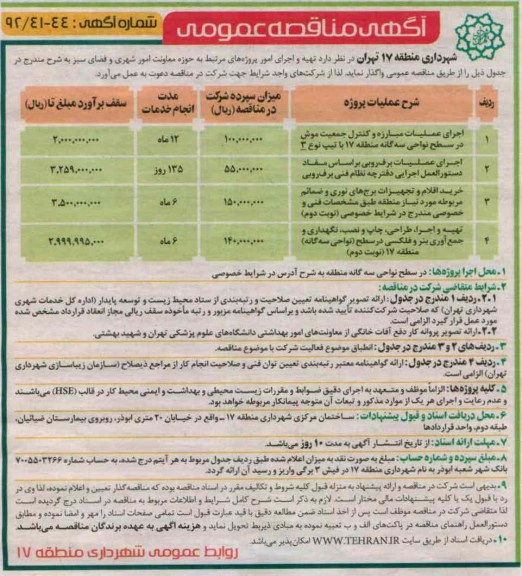 آگهی مناقصه عمومی
شماره آگهی : ۹۲/۴۱-۴۴
شهرداری منطقه ۱۷ تهران در نظر دارد تهیه و اجرای امور پروژه‌های مرتبط به حوزه معاونت امور شهری و فضای سبز به شرح مندرج در
جدول ذیل را از طریق مناقصه عمومی واگذار نماید. لذا از شرکت‌های واجد شرایط جهت شرکت در مناقصه دعوت به عمل می‌آورد.
ردیف شرح عملیات پروژه میزان سپرده شرکت در مناقصه (ریال) مدت انجام خدمات سقف برآورد مبلغ تا (ریال)
۱ اجرای عملیات مبارزه و کنترل جمعیت موش ۱۰۰,۰۰۰,۰۰۰ ۱۲ ماه ۲,۰۰۰,۰۰۰,۰۰۰
در سطح نواحی سه گانه منطقه ۱۷ با تیپ نوع ۳
۲ اجرای عملیات برف‌روبی براساس مفاد ۵۵,۰۰۰,۰۰۰ ۱۳۵ روز ۳,۲۵۹,۰۰۰,۰۰۰
دستورالعمل اجرایی دفترچه نظام فنی برف‌روبی
۳ خرید اقلام و تجهیزات برج‌های نوری و ضمائم ۱۵۰,۰۰۰,۰۰۰ ۶ ماه ۳,۵۰۰,۰۰۰,۰۰۰
مربوطه مورد نیاز منطقه طبق مشخصات فنی و
خصوصی مندرج در شرایط خصوصی (نوبت دوم)
۴ تهیه و اجرا، طراحی، چاپ و نصب، نگهداری و ۱۴۰,۰۰۰,۰۰۰ ۶ ماه ۲,۹۹۹,۹۹۵,۰۰۰
جمع آوری بنر و فلکسی در سطح (نواحی سه گانه)
منطقه ۱۷ (نوبت دوم)
۱ـ محل اجرا پروژه‌ها: در سطح نواحی سه گانه منطقه به شرح آدرس در شرایط خصوصی
۲ـ شرایط متقاضی شرکت در مناقصه:
۲،۱ـ ردیف ۱ مندرج در جدول: ارائه تصویر گواهینامه تعیین صلاحیت و رتبه‌بندی از ستاد محیط زیست و توسعه پایدار (اداره کل خدمات شهری
شهرداری تهران) که صلاحیت شرکت‌کننده تأیید شده باشد و براساس گواهینامه مزبور و رتبه مأخوذه سقف ریالی مجاز انعقاد قرارداد مشخص شده
مورد عمل قرار گیرد الزامی است.
۲،۲ـ ارائه تصویر پروانه کار دفع آفات خانگی از معاونت‌های امور بهداشتی دانشگاه‌های علوم پزشکی تهران و شهید بهشتی.
۳ـ ردیف‌های ۲ و ۳ مندرج در جدول: انطباق موضوع فعالیت شرکت با موضوع مناقصه.
۴ـ ردیف ۴ مندرج در جدول: ارائه گواهینامه معتبر رتبه‌بندی تعیین توان فنی و صلاحیت انجام کار از مراجع ذیصلاح (سازمان زیباسازی شهرداری
تهران) الزامی است.
۵ـ کلیه پروژه‌ها: الزاماً موظف و متعهد به اجرای دقیق ضوابط و مقررات زیست محیطی و بهداشت و ایمنی محیط کار در قالب (HSE) می‌باشند
و عدم رعایت و اجرای هر یک از موارد مذکور و تبعات آن متوجه پیمانکار مربوطه خواهد بود.
۶ـ محل دریافت اسناد و قبول پیشنهادات: ساختمان مرکزی شهرداری منطقه ۱۷ ـ واقع در خیابان ۲۰ متری ابوذر، روبروی بیمارستان ضیائیان،
طبقه دوم، واحد قراردادها
۷ـ مهلت ارائه اسناد: از تاریخ انتشار آگهی به مدت ۱۰ روز می‌باشد.
۸ـ مبلغ سپرده و شماره حساب: مبلغ به صورت نقد به میزان اعلام شده طبق ردیف جدول مربوط به هر آیتم درج شده، به حساب شماره ۷۰۰۵۵۰۳۲۶۶
بانک شهر شعبه ابوذر به نام شهرداری منطقه ۱۷ در فیش ۳ برگی واریز و رسید آن ارائه گردد.
۹ـ بدیهی است شرکت در مناقصه و ارائه پیشنهاد به منزله قبول کلیه شروط و تکالیف مقرر در اسناد مناقصه بوده که مناقصه‌گذار تعیین و اعلام نموده، لذا وی در
رد یا قبول یک یا کلیه پیشنهادات مالی مختار است. لازم به ذکر است شرح کامل شرایط و اطلاعات مربوط به مناقصه در اسناد درج گردیده است
لذا متقاضی شرکت در مناقصه موظف است پس از اخذ اسناد ضمن مطالعه دقیق با قید عبارت قبول است تمامی صفحات اسناد را مهر و امضا نموده و مطابق
دستورالعمل راهنمای مناقصه در پاکت‌های الف و ب تعبیه نموده به مبادی ذیربط تحویل نماید و هزینه آگهی به عهده برندگان مناقصه می‌باشد.
۱۰ـ دریافت اسناد از طریق سایت WWW.TEHRAN.IR امکان‌پذیر می‌باشد.
روابط عمومی شهرداری منطقه ۱۷